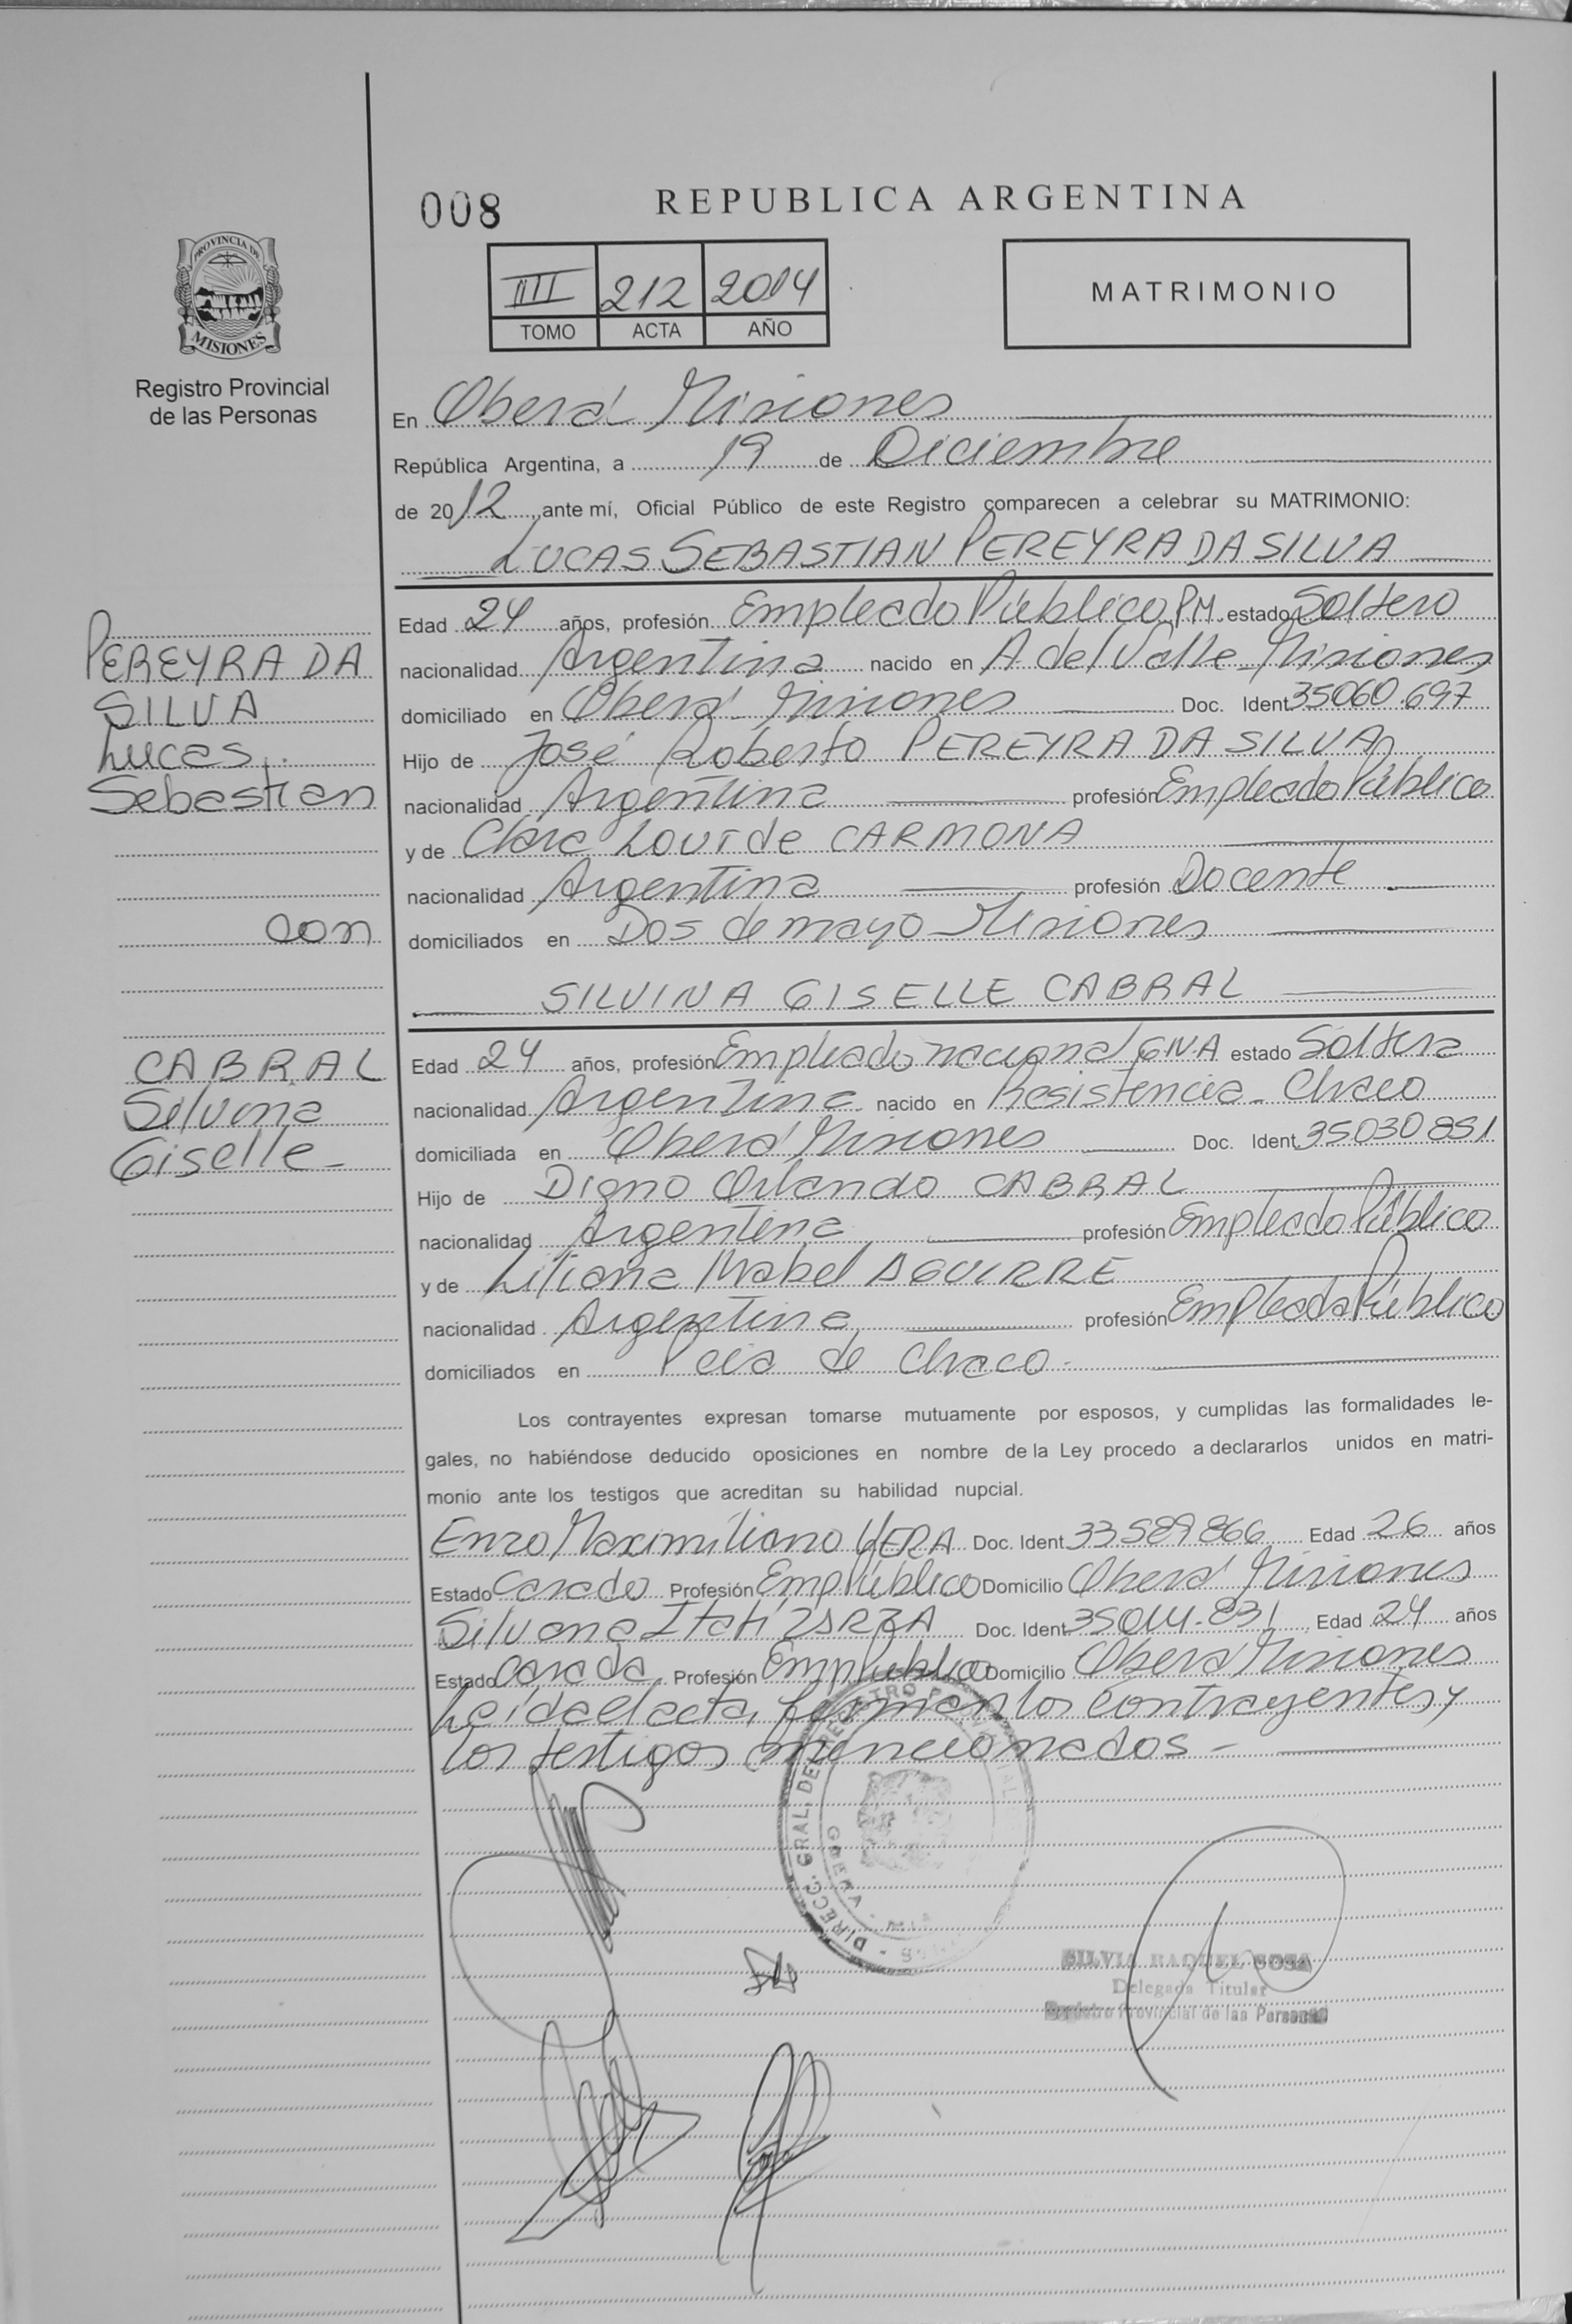 008
REPUBLICA ARGENTINA
PROVINCIA DE
MISIONES
Registro Provincial
de las Personas
IIII 212 2014
TOMO ACTA AÑO
MATRIMONIO
En Oberá Misiones
República Argentina, a 19 de Diciembre
de 2012, ante mí, Oficial Público de este Registro comparecen a celebrar su MATRIMONIO:
LUCAS SEBASTIAN PEREYRA DA SILVA
Edad 24 años, profesión Empleado Público PM estado Soltero
nacionalidad Argentina nacido en A del Valle - Misiones
domiciliado en Oberá - Misiones Doc. Ident. 35060.697
Hijo de José Roberto PEREYRA DA SILVA
nacionalidad Argentina profesión Empleado Público
y de Clara Lourde CARMONA
nacionalidad Argentina profesión Docente
domiciliados en Dos de mayo Misiones
SILVINA GISELLE CABRAL
Edad 24 años, profesión Empleado nacional GNA estado Soltera
nacionalidad Argentina nacido en Resistencia - Chaco
domiciliada en Oberá Misiones Doc. Ident. 35030851
Hijo de Digno Orlando CABRAL
nacionalidad Argentina profesión Empleado Público
y de Liliana Mabel AGUIRRE
nacionalidad Argentina profesión Empleada Público
domiciliados en Pcia de Chaco -
Los contrayentes expresan tomarse mutuamente por esposos, y cumplidas las formalidades le-
gales, no habiéndose deducido oposiciones en nombre de la Ley procedo a declararlos unidos en matri-
monio ante los testigos que acreditan su habilidad nupcial.
Enzo Maximiliano VERA Doc. Ident 33589866 Edad 26 años
Estado Casado Profesión Emp Público Domicilio Oberá Misiones
Silvana Itatí ZARZA Doc. Ident. Edad 24 años
Estado Casada Profesión Emp Público Domicilio Oberá Misiones
Leida el acta, firman los contrayentes y
los testigos mencionados -
PEREYRA DA
SILVA
Lucas
Sebastian
con
CABRAL
Silvina
Giselle -
DIRECC. GRAL. DEL REGISTRO
SILVIA RAQUEL SOSA
Delegada Titular
Registro Provincial de las Personas